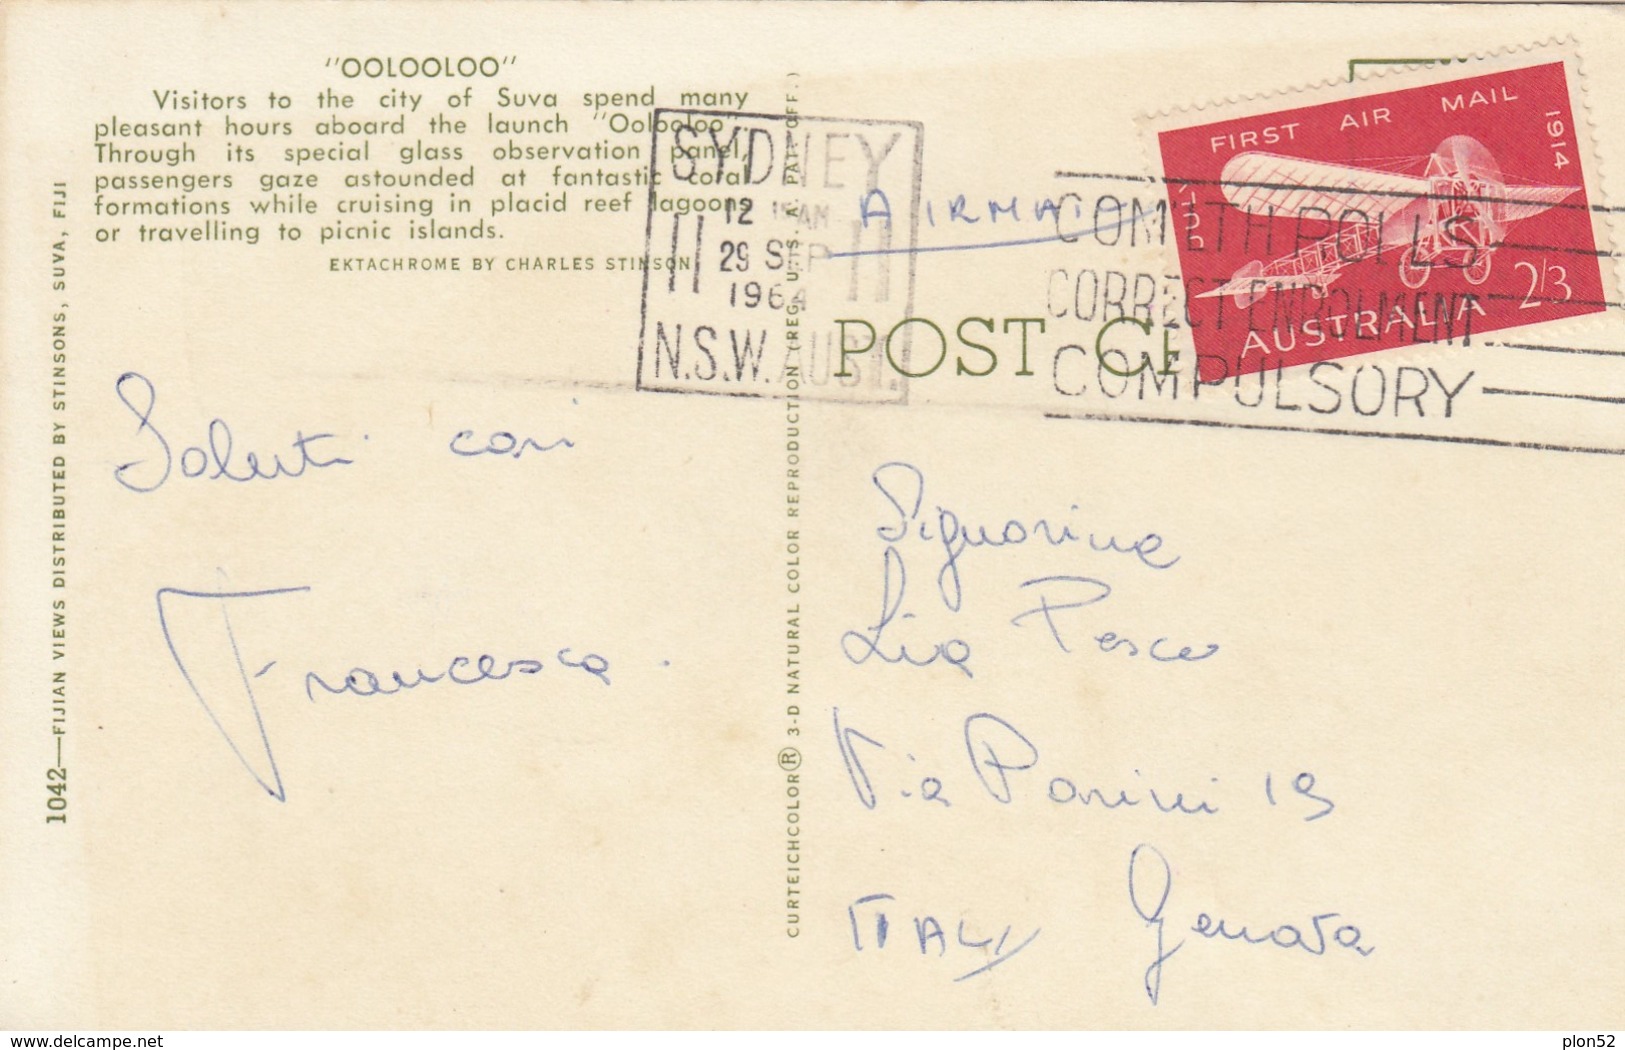 "OOLOOLOO"
Visitors to the city of Suva spend many
pleasant hours aboard the launch "Oolooloo".
Through its special glass observation panel,
passengers gaze astounded at fantastic coral
formations while cruising in placid reef lagoons
or travelling to picnic islands.
EKTACHROME BY CHARLES STINSON
1042—FIJIAN VIEWS DISTRIBUTED BY STINSONS, SUVA, FIJI
CURTEICHCOLOR® 3-D NATURAL COLOR REPRODUCTION (REG. U. S. A. PAT. OFF.)
SYDNEY
12 AM
29 SEP
1964
N.S.W. AUST.
AIRMAIL
POST
COM'LTH POLLS
CORRECT ENROLMENT
COMPULSORY
FIRST AIR MAIL 1914
2'3
AUSTRALIA
Saluti cari
Francesca.
Signorina
Lia Pesce
Via Parini 19
Genova
ITALY
delcampe.net
plon52